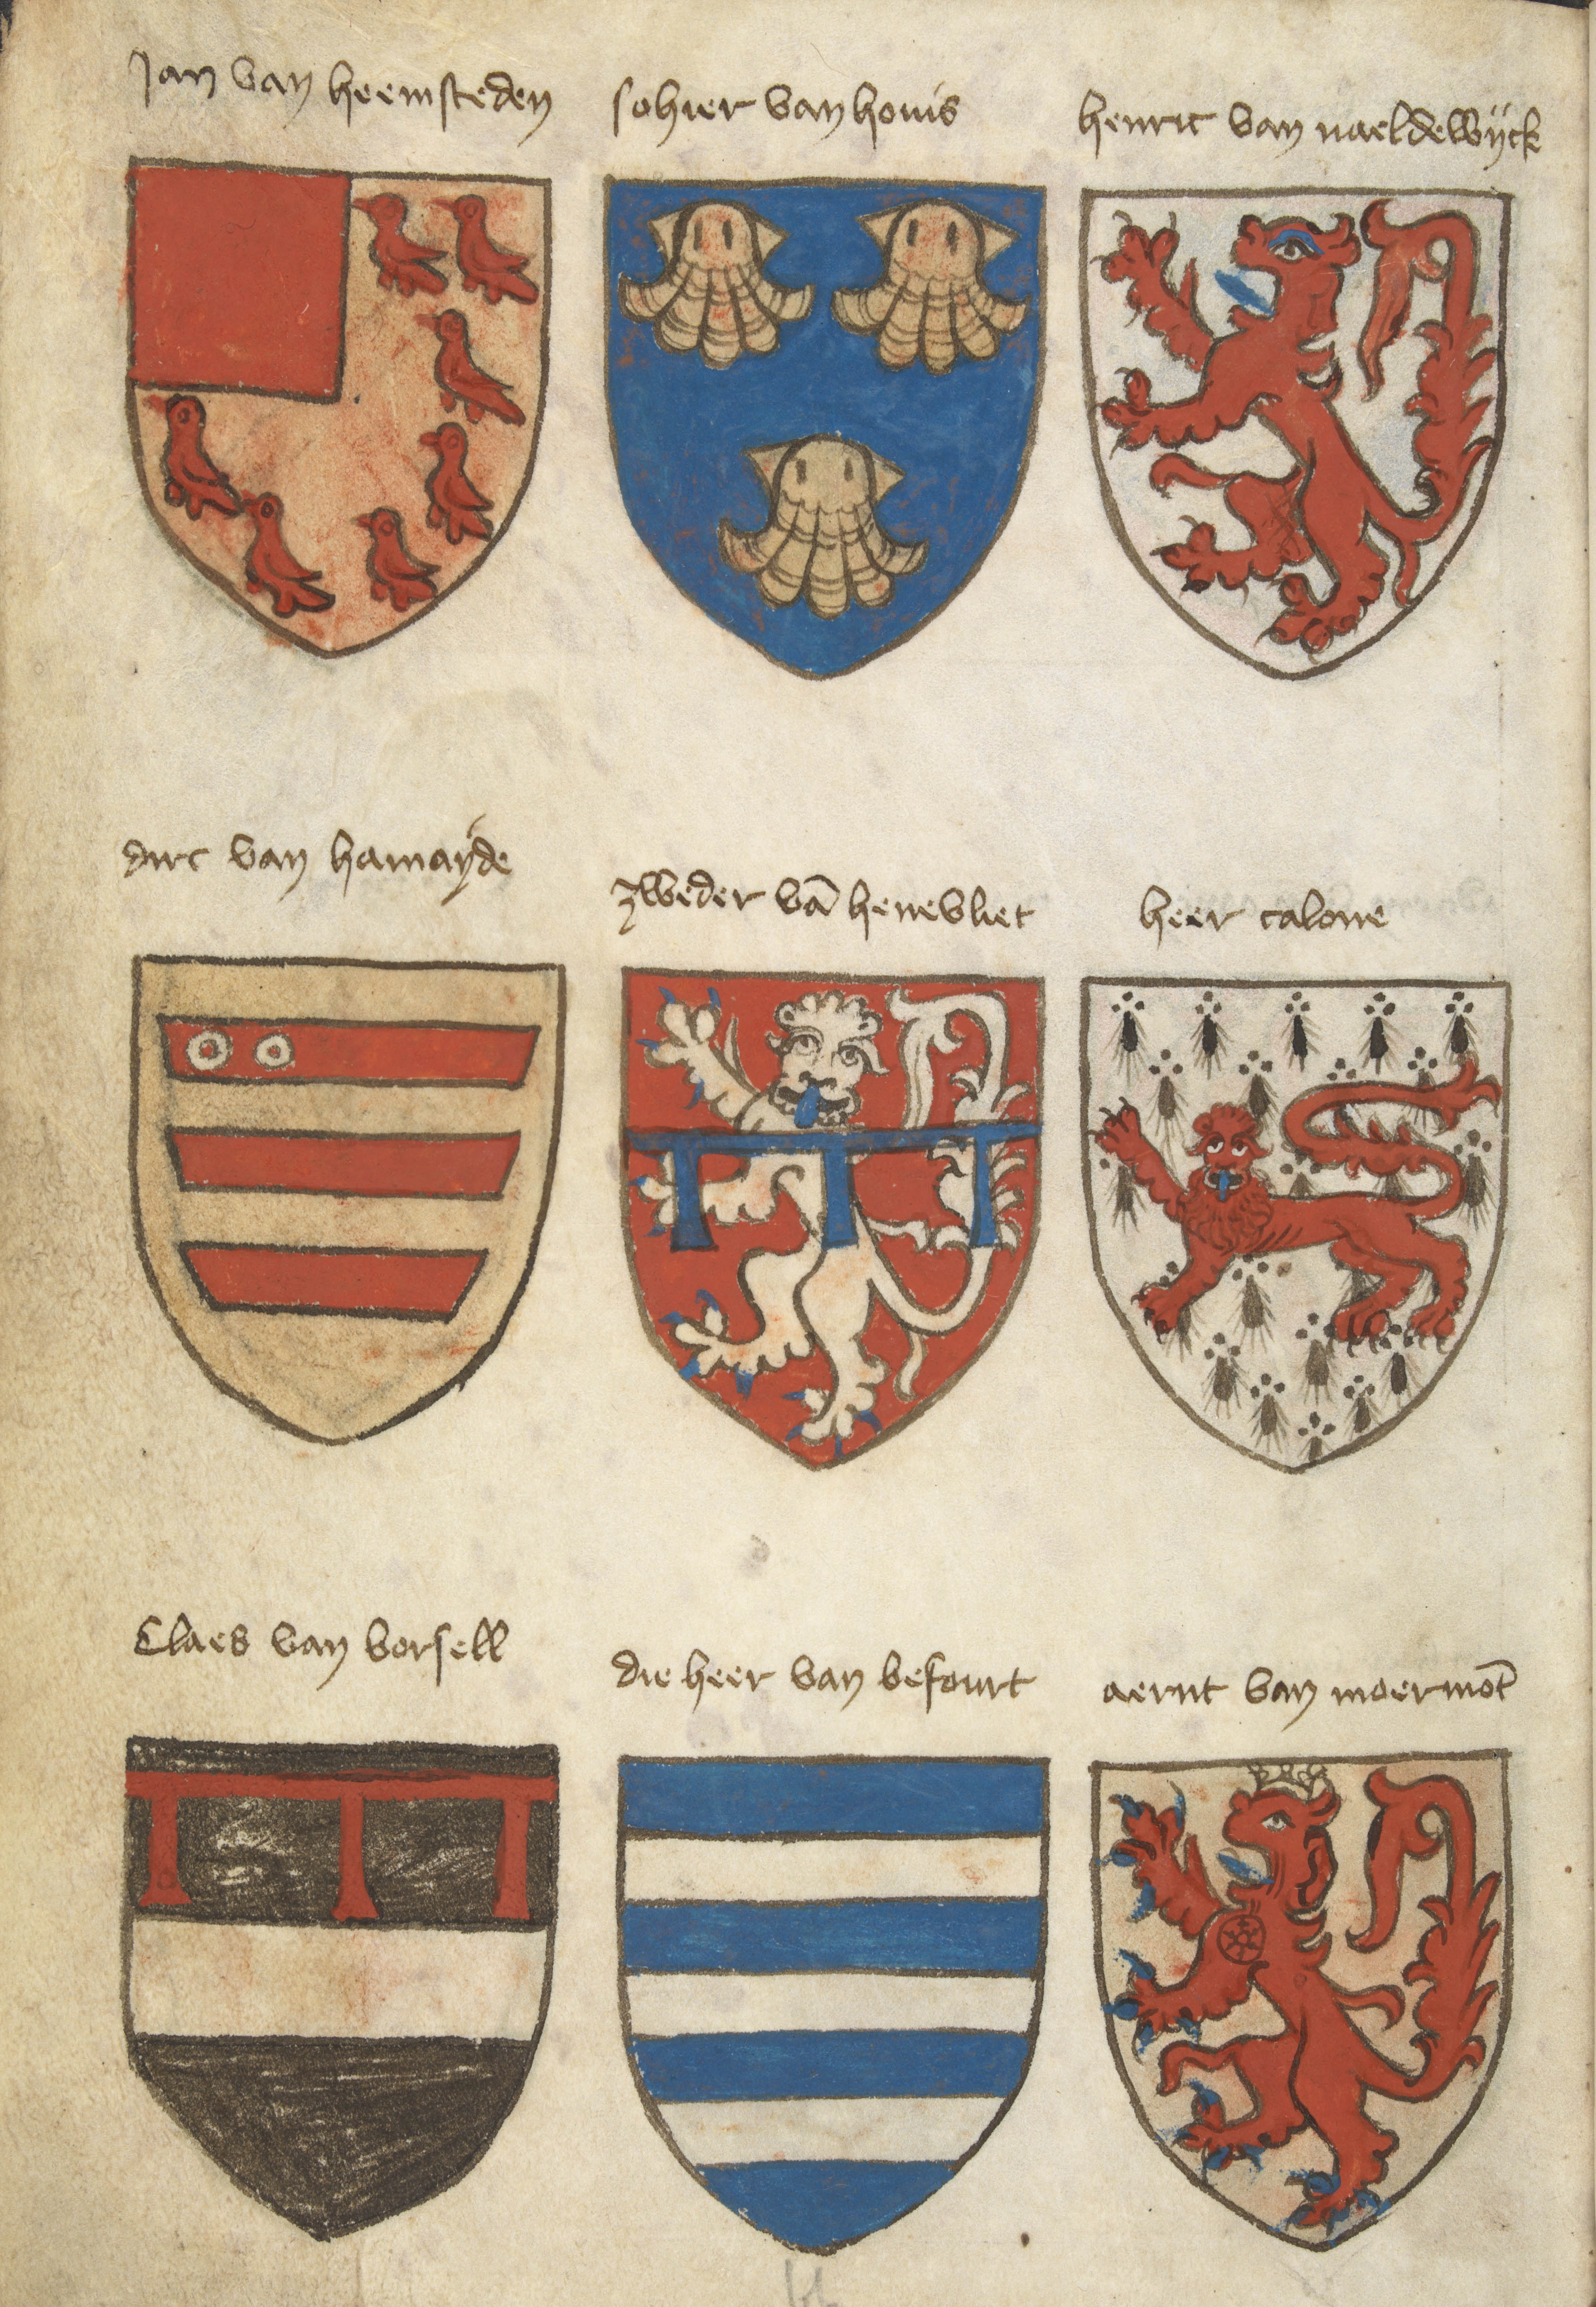 Jan van heemsteden
sohier van houis
henric van naeldewijck
dirc van hamayde
zweder vā henevliet
heer calone
Claes van borsell
die heer van befourt
aernt van moermōt